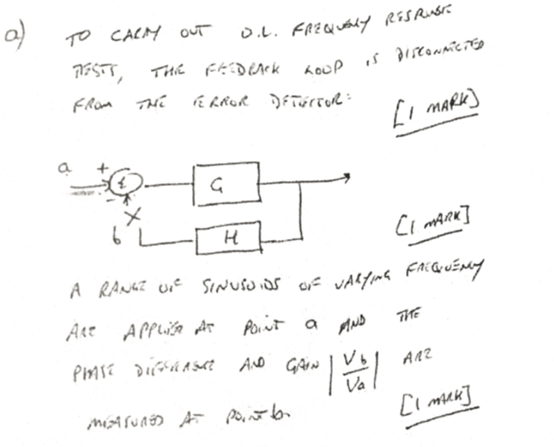 a) TO CARRY OUT O.L. FREQUENCY RESPONSE
TESTS, THE FEEDBACK LOOP IS DISCONNECTED
FROM THE ERROR DETECTOR:
[1 MARK]
a + Σ G
-
b H
[1 MARK]
A RANGE OF SINUSOIDS OF VARYING FREQUENCY
ARE APPLIED AT POINT a AND THE
PHASE DIFFERENCE AND GAIN |Vb/Va| ARE
MEASURED AT POINT b.
[1 MARK]